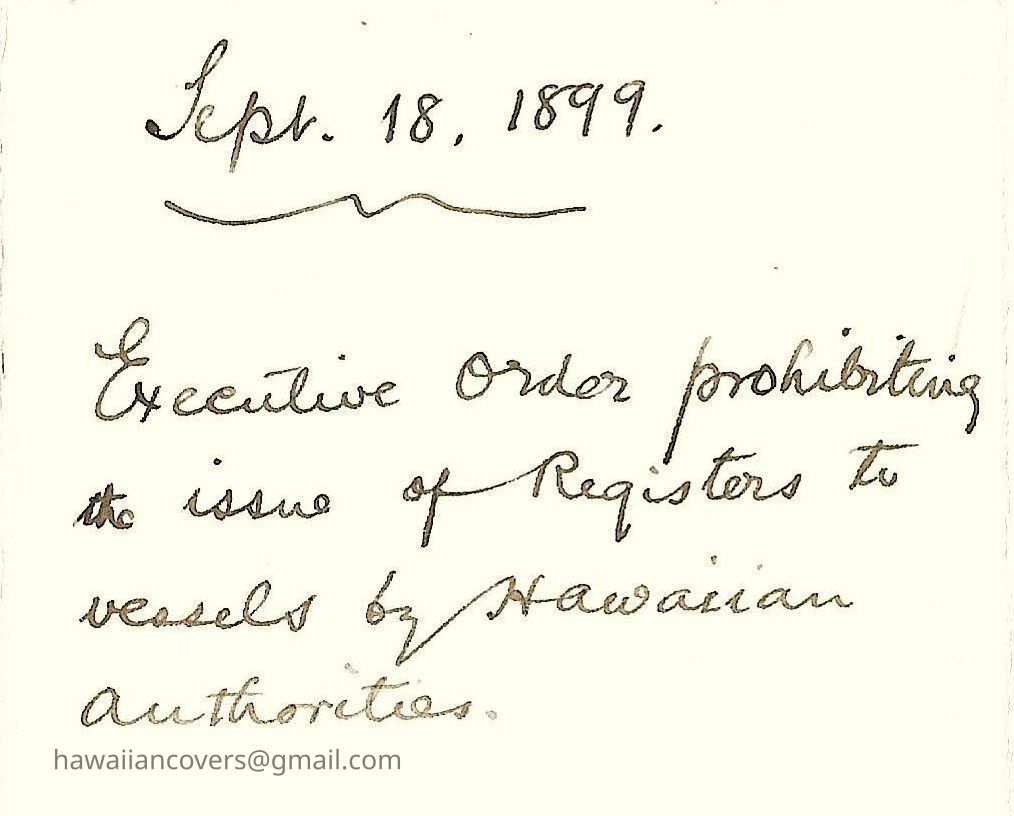 Sept. 18, 1899.
Executive Order prohibiting
the issue of Registers to
vessels by Hawaiian
Authorities.
hawaiiancovers@gmail.com